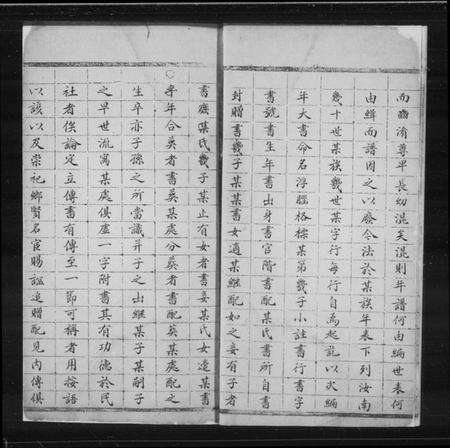 而幽淆尊卑長幼混矣混則年譜何由編世表何
由緝而譜因之以廢今法於某族年表下列汝南
幾十世某族幾世某字行每行自為起訖以次編
年大書命名浮腦格標某第幾子小註書行書字
書號書生年書出身書官階書配某氏書所自書
封贈書幾子某某書女適某繼配如之妾有子者
書礙某氏幾子某止有女者書妾某氏女適某書
享年合葬者書葬某處分葬者書配葬某處配之
生卒亦子孫之所當識幷子之出繼某子某嗣子
之早世流寓某處俱虛一字附書其有功德於民
社者俟論定立傳書有傳至一節可稱者用按語
以該以及崇祀鄉賢名宦賜謚追贈配見內傳俱